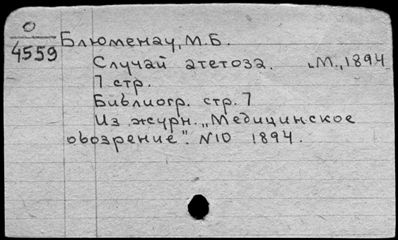 О
4559
Блюменау, М.Б.
Случай атетоза. М., 1894
7 стр.
Библиогр. стр. 7
Из журн. „Медицинское
обозрение". №10 1894.